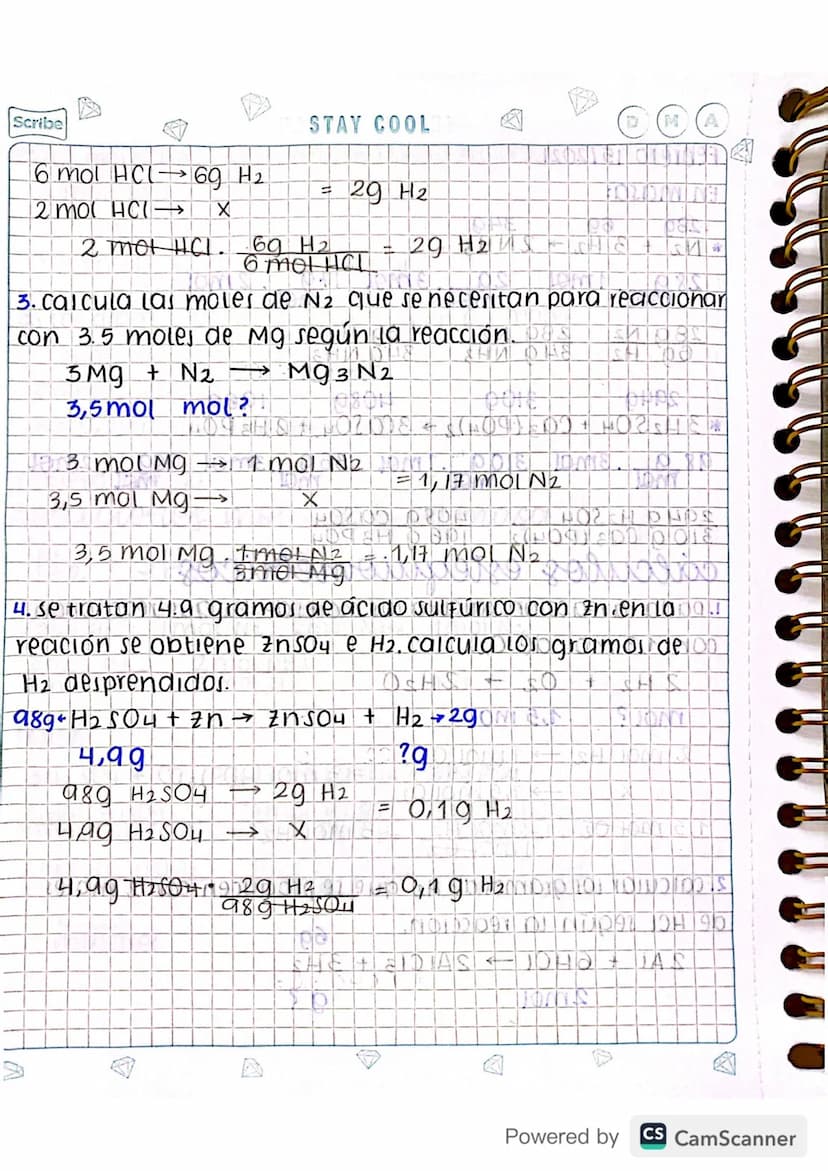 Scribe
STAY COOL
D M A
6 mol HCl → 6g H2
= 2g H2
2 mol HCl → X
2 mol HCl . 6g H2 / 6 mol HCl = 2g H2
3. calcula las moles de N2 que se necesitan para reaccionar
con 3.5 moles de Mg según la reacción.
3Mg + N2 → Mg3N2
3,5mol mol?
3 mol Mg → 1 mol N2
= 1,17 mol N2
3,5 mol Mg → X
3,5 mol Mg . 1 mol N2 / 3 mol Mg = 1,17 mol N2
4. se tratan 4.9 gramos de ácido sulfúrico con Zn. en la
reación se obtiene ZnSO4 e H2. calcula los gramos de
H2 desprendidos.
98g ← H2SO4 + Zn → ZnSO4 + H2 → 2g
4,9g ?g
98g H2SO4 → 2g H2
= 0,1g H2
4,9g H2SO4 → X
4,9g H2SO4 . 2g H2 / 98g H2SO4 = 0,1g H2
Powered by CS CamScanner